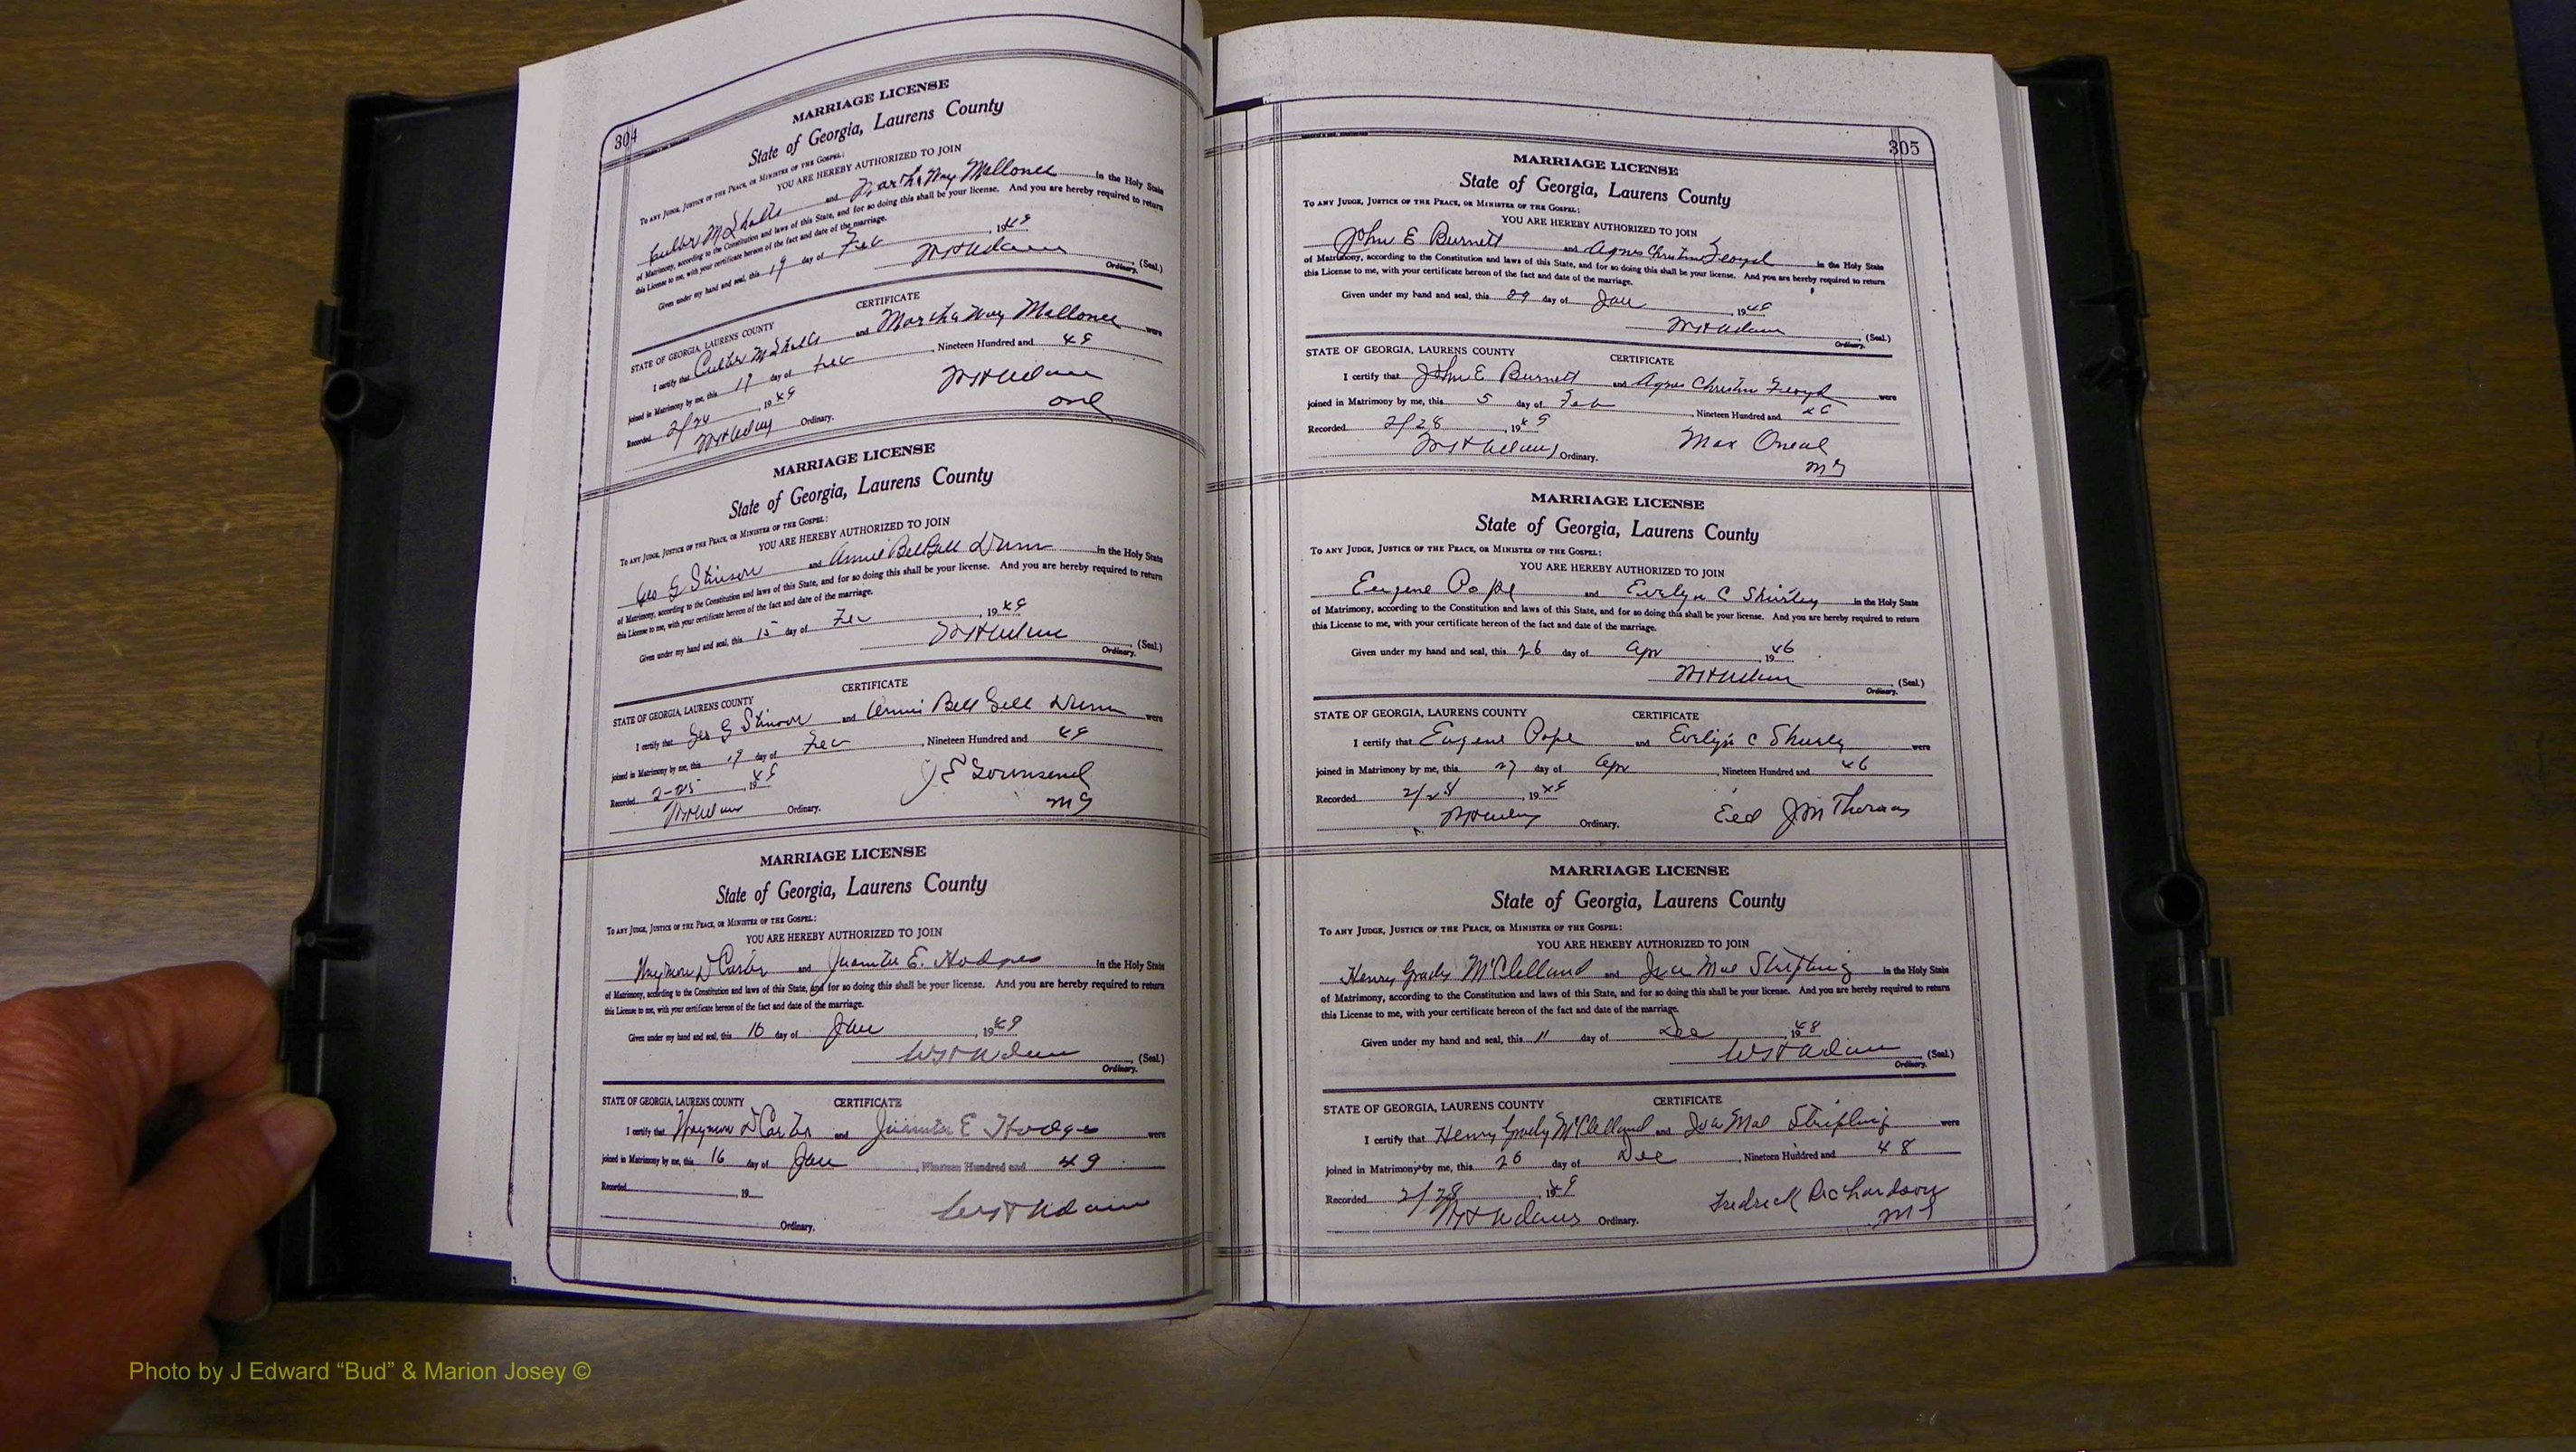 304
MARRIAGE LICENSE
State of Georgia, Laurens County
TO ANY JUDGE, JUSTICE OF THE PEACE, OR MINISTER OF THE GOSPEL:
YOU ARE HEREBY AUTHORIZED TO JOIN
and Martha May Mallonee in the Holy State
of Matrimony, according to the Constitution and laws of this State, and for so doing this shall be your license. And you are hereby required to return
this License to me, with your certificate hereon of the fact and date of the marriage.
Given under my hand and seal, this 19 day of Feb 1949
(Seal.)
Ordinary.
CERTIFICATE
STATE OF GEORGIA, LAURENS COUNTY
I certify that and Martha May Mallonee were
joined in Matrimony by me, this 19 day of Feb, Nineteen Hundred and 49
Recorded 2/24, 1949
Ordinary.
MARRIAGE LICENSE
State of Georgia, Laurens County
TO ANY JUDGE, JUSTICE OF THE PEACE, OR MINISTER OF THE GOSPEL:
YOU ARE HEREBY AUTHORIZED TO JOIN
Geo G Stinson and Annie Bell Bell Dunn in the Holy State
of Matrimony, according to the Constitution and laws of this State, and for so doing this shall be your license. And you are hereby required to return
this License to me, with your certificate hereon of the fact and date of the marriage.
Given under my hand and seal, this 15 day of Feb, 1949
(Seal.)
Ordinary.
CERTIFICATE
STATE OF GEORGIA, LAURENS COUNTY
I certify that Geo G Stinson and Annie Bell Bell Dunn were
joined in Matrimony by me, this 19 day of Feb, Nineteen Hundred and 49
Recorded 2-25, 1949
J E Townsend
MG
Ordinary.
MARRIAGE LICENSE
State of Georgia, Laurens County
TO ANY JUDGE, JUSTICE OF THE PEACE, OR MINISTER OF THE GOSPEL:
YOU ARE HEREBY AUTHORIZED TO JOIN
Waymon D Carter and Juanita E. Hodges in the Holy State
of Matrimony, according to the Constitution and laws of this State, and for so doing this shall be your license. And you are hereby required to return
this License to me, with your certificate hereon of the fact and date of the marriage.
Given under my hand and seal, this 16 day of Jan, 1949
(Seal.)
Ordinary.
STATE OF GEORGIA, LAURENS COUNTY CERTIFICATE
I certify that Waymon D Carter and Juanita E Hodges were
joined in Matrimony by me, this 16 day of Jan, Nineteen Hundred and 49
Recorded , 19
Ordinary.
305
MARRIAGE LICENSE
State of Georgia, Laurens County
TO ANY JUDGE, JUSTICE OF THE PEACE, OR MINISTER OF THE GOSPEL:
YOU ARE HEREBY AUTHORIZED TO JOIN
John E Burnett and Agnes Christine Floyd in the Holy State
of Matrimony, according to the Constitution and laws of this State, and for so doing this shall be your license. And you are hereby required to return
this License to me, with your certificate hereon of the fact and date of the marriage.
Given under my hand and seal, this 29 day of Jan, 1949
(Seal.)
Ordinary.
STATE OF GEORGIA, LAURENS COUNTY CERTIFICATE
I certify that John E Burnett and Agnes Christine Floyd were
joined in Matrimony by me, this 5 day of Feb, Nineteen Hundred and
Recorded 2/28, 1949
Max Oneal
MG
Ordinary.
MARRIAGE LICENSE
State of Georgia, Laurens County
TO ANY JUDGE, JUSTICE OF THE PEACE, OR MINISTER OF THE GOSPEL:
YOU ARE HEREBY AUTHORIZED TO JOIN
Eugene Pope and Evelyn C Shurley in the Holy State
of Matrimony, according to the Constitution and laws of this State, and for so doing this shall be your license. And you are hereby required to return
this License to me, with your certificate hereon of the fact and date of the marriage.
Given under my hand and seal, this 26 day of Apr, 1946
(Seal.)
Ordinary.
STATE OF GEORGIA, LAURENS COUNTY CERTIFICATE
I certify that Eugene Pope and Evelyn C were
joined in Matrimony by me, this 27 day of Apr, Nineteen Hundred and 46
Recorded 2/28, 1949
J M Thomas
Ordinary.
MARRIAGE LICENSE
State of Georgia, Laurens County
TO ANY JUDGE, JUSTICE OF THE PEACE, OR MINISTER OF THE GOSPEL:
YOU ARE HEREBY AUTHORIZED TO JOIN
Henry Grady McClelland and Iva Mae Stripling in the Holy State
of Matrimony, according to the Constitution and laws of this State, and for so doing this shall be your license. And you are hereby required to return
this License to me, with your certificate hereon of the fact and date of the marriage.
Given under my hand and seal, this 11 day of Dec, 1948
(Seal.)
Ordinary.
STATE OF GEORGIA, LAURENS COUNTY CERTIFICATE
I certify that Henry Grady McClelland and Iva Mae Stripling were
joined in Matrimony by me, this 26 day of Dec, Nineteen Hundred and 48
Recorded 2/28, 1949
Fredrick Richardson
MG
Ordinary.
Photo by J Edward “Bud” & Marion Josey ©